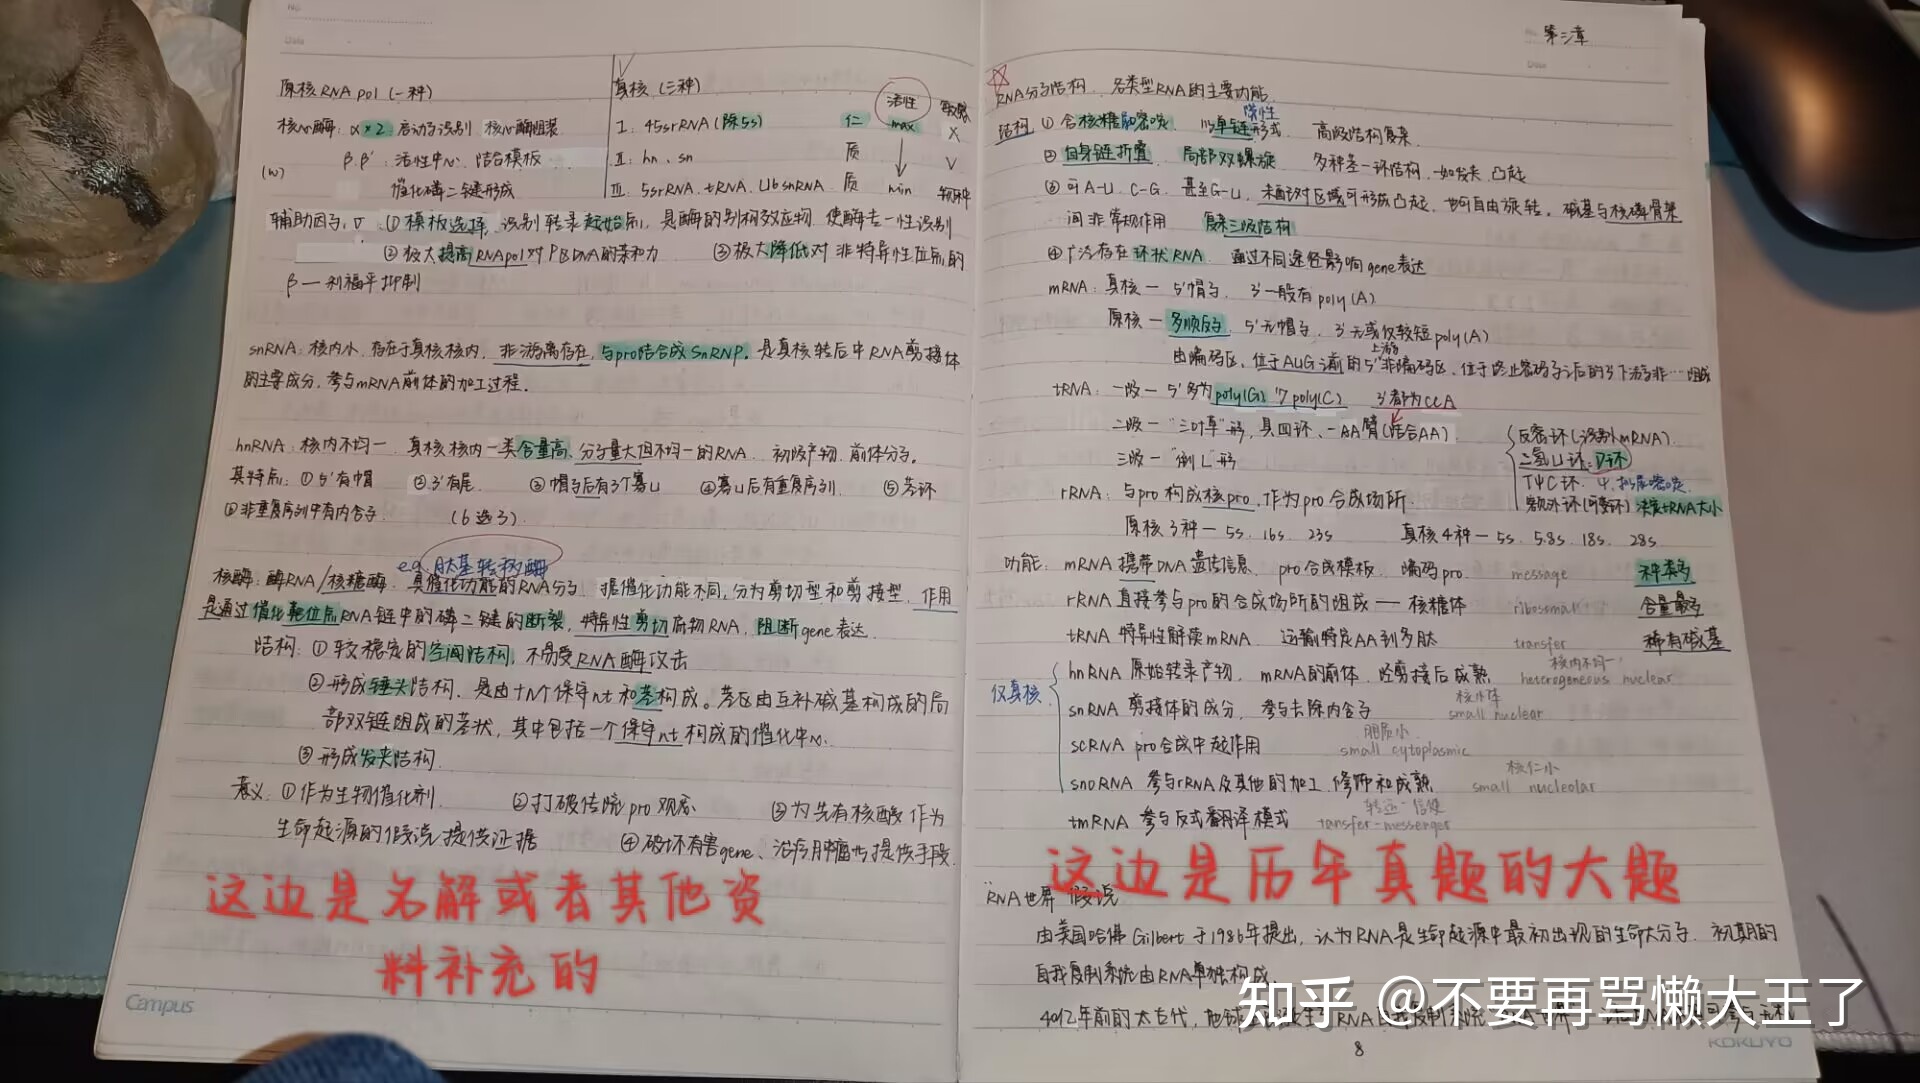 No.
Date
原核RNA pol (一种)
核心酶: α×2 启动子识别 核心酶组装
β.β' : 活性中心. 结合模板
(w) 催化磷二键形成
真核 (三种)
活性
I. 45srRNA (除5s) 仁 max X
II: hn、sn 质 ↓ V
III. 5srRNA. tRNA. U6snRNA 质 min 物种
辅助因子, σ : ①模板选择, 识别转录起始点, 是酶的别构效应物. 使酶专一性识别
②极大提高RNApol对PBDNA的亲和力 ③极大降低对非特异性位点的
β — 利福平抑制
snRNA: 核内小. 存在于真核核内. 非游离存在, 与pro结合成SnRNP. 是真核转后中RNA剪接体
的主要成分, 参与mRNA前体的加工过程.
hnRNA: 核内不均一. 真核核内一类含量高、分子量大但不均一的RNA. 初级产物. 前体分子.
其特点: ①5'有帽 ②3'有尾. ③帽子后有3个寡U ④寡U后有重复序列. ⑤茎环
⑥非重复序列中有内含子. (6选3).
e.g. 肽基转移酶
核酶: 酶RNA/核糖酶. 具催化功能的RNA分子. 据催化功能不同, 分为剪切型和剪接型. 作用
是通过催化靶位点RNA链中的磷二键的断裂, 特异性剪切底物RNA, 阻断gene表达.
结构: ①较稳定的空间结构, 不易受RNA酶攻击
②形成锤头结构. 是由十几个保守nt和茎构成。茎区由互补碱基构成的局
部双链组成的茎状, 其中包括一个保守nt构成的催化中心.
③形成发夹结构.
意义: ①作为生物催化剂. ②打破传统pro观念 ③为先有核酸作为
生命起源的假说提供证据 ④破坏有害gene、治疗肿瘤等提供手段.
这边是名解或者其他资
料补充的
Campus
第三章
Date
RNA分子结构. 各类型RNA的主要功能.
结构 ①含核糖和嘧啶. 以单链形式. 高级结构复杂.
②自身链折叠. 局部双螺旋 多种茎—环结构. 如发夹. 凸起
③可A-U. C-G. 甚至G-U. 未配对区域可形成凸起. 也可自由旋转. 碱基与核磷骨架
间非常规作用 复杂三级结构
④广泛存在环状RNA. 通过不同途径影响gene表达
mRNA: 真核 — 5'帽子. 3'一般有poly(A)
原核 — 多顺反子, 5'无帽子, 3'无或仅较短poly(A)
上游
由编码区, 位于AUG之前的5'非编码区, 位于终止密码子之后的3'下游非…组成
tRNA: 一级 — 5'多为poly(G) 7poly(C) 3'都为CCA
二级 — "三叶草"形, 具四环、一AA臂(结合AA).
三级 — "倒L"形
反密环(识别mRNA).
二氢U环: D环
TψC环. ψ.
额外环(可变环) 决定tRNA大小
rRNA: 与pro构成核pro, 作为pro合成场所.
原核3种 — 5s. 16s. 23s 真核4种 — 5s. 5.8s. 18s. 28s
功能: mRNA 携带DNA遗传信息. pro合成模板. 编码pro. message 种类多
rRNA 直接参与pro的合成场所的组成 — 核糖体 ribosomal 含量最多
tRNA 特异性解读mRNA. 运输特定AA到多肽 transfer 稀有碱基
仅真核
核内不均一
hnRNA 原始转录产物. mRNA的前体. 经剪接后成熟 heterogeneous nuclear
snRNA 剪接体的成分, 参与去除内含子 small nuclear
胞质小
scRNA pro合成中起作用 small cytoplasmic
核仁小
snoRNA 参与rRNA及其他的加工. 修饰和成熟 small nucleolar
转运-信使
tmRNA 参与反式翻译模式 transfer-messenger
这边是历年真题的大题
RNA世界假说
由美国哈佛Gilbert于1986年提出, 认为RNA是生命起源中最初出现的生命大分子. 初期的
自我复制系统由RNA单独构成.
40亿年前的太古代, 地球
知乎 @不要再骂懒大王了
8
KOKUYO